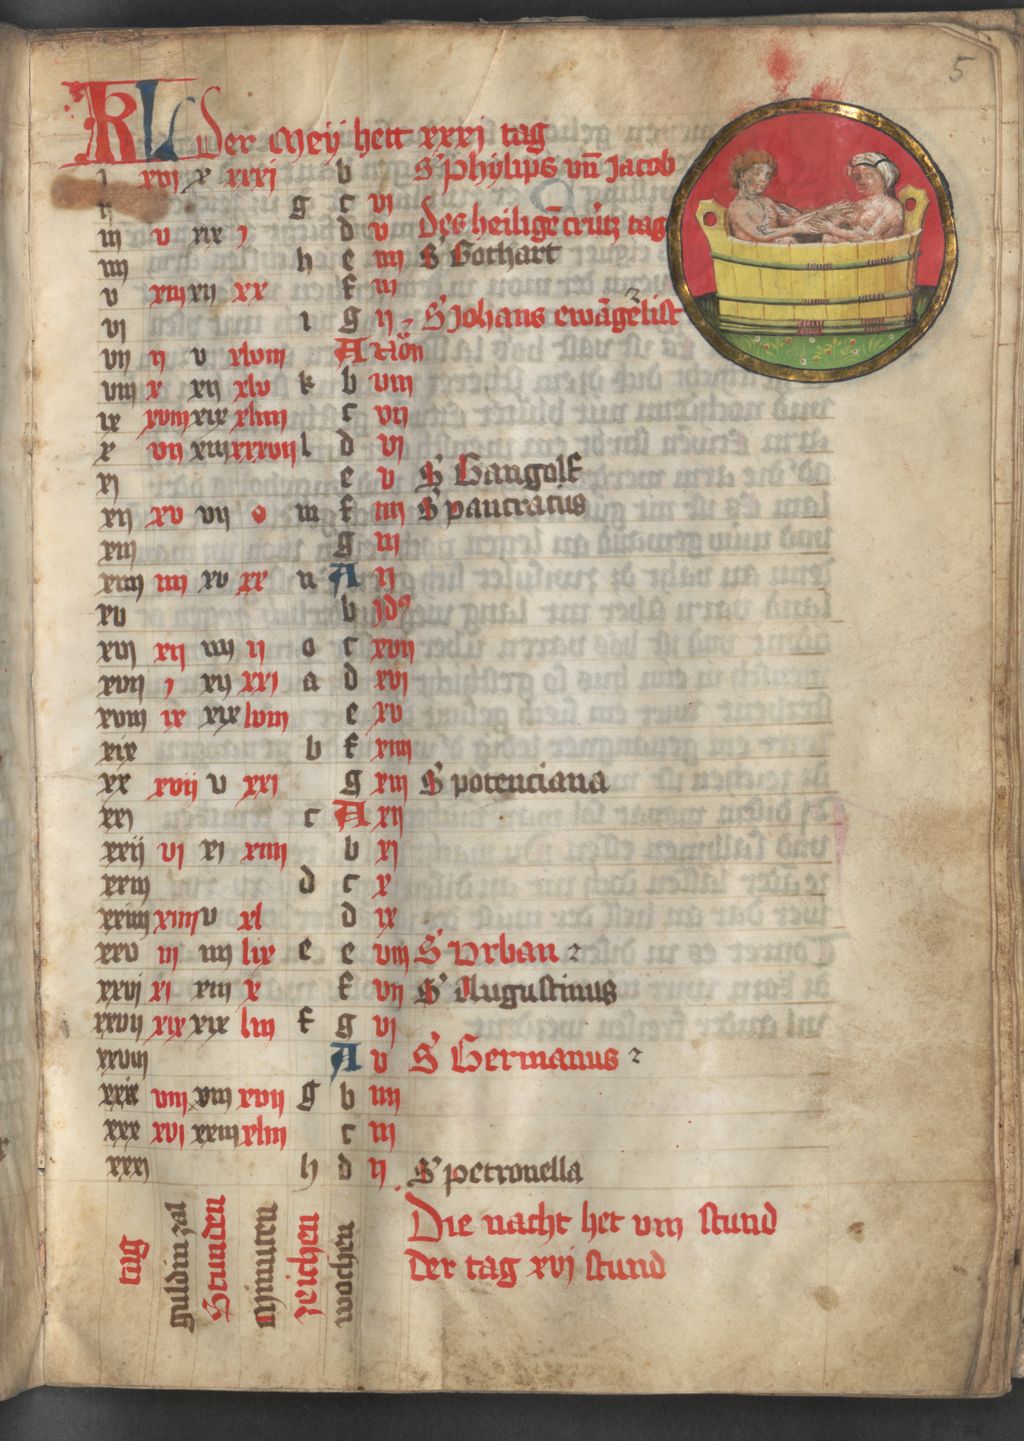 5
KL Der Meÿ hett xxxj tag
j xvj x xxxj b S' Phÿlips vn̄ Jacob
ij g c vj
iij v xix j d v Des heilige᷑ crütz tag
iiij h e iiij S' Gothart
v xiij xij xx f iij
vj i g ij S' Johans ewāgelist
vij ij v xlviij A
viij x xij xlv k b viij
ix xviij xix xliiij c vij
x vij xiiij xxxvij l d vj
xj e v S' Gangolf
xij xv vij o m f iiij S' pancracius
xiij g iij
xiiij iiij xv xx n A ij
xv b jdꝰ
xvj xij iiij ij o c xvij
xvij j xij xxj a d xvj
xviij ix xix lviij e xv
xix b f xiiij
xx xvij v xxj g xiij S' potenciana
xxj c A xij
xxij vj xj xiiij b xj
xxiij d c x
xxiiij xiiij v xl d ix
xxv iij iiij lix e e viij S' Vrban
xxvj xj xiij x f vij S' Augustinus
xxvij xix xix liij f g vj
xxviij A v S' Germanus
xxix viij viij xvij g b iiij
xxx xvj xxiij xliij c iij
xxxj h d ij S' petronella
tag guldin zal Stunden Minuten zeichen wochen
Die nacht het viij stund
Der tag xvj stund